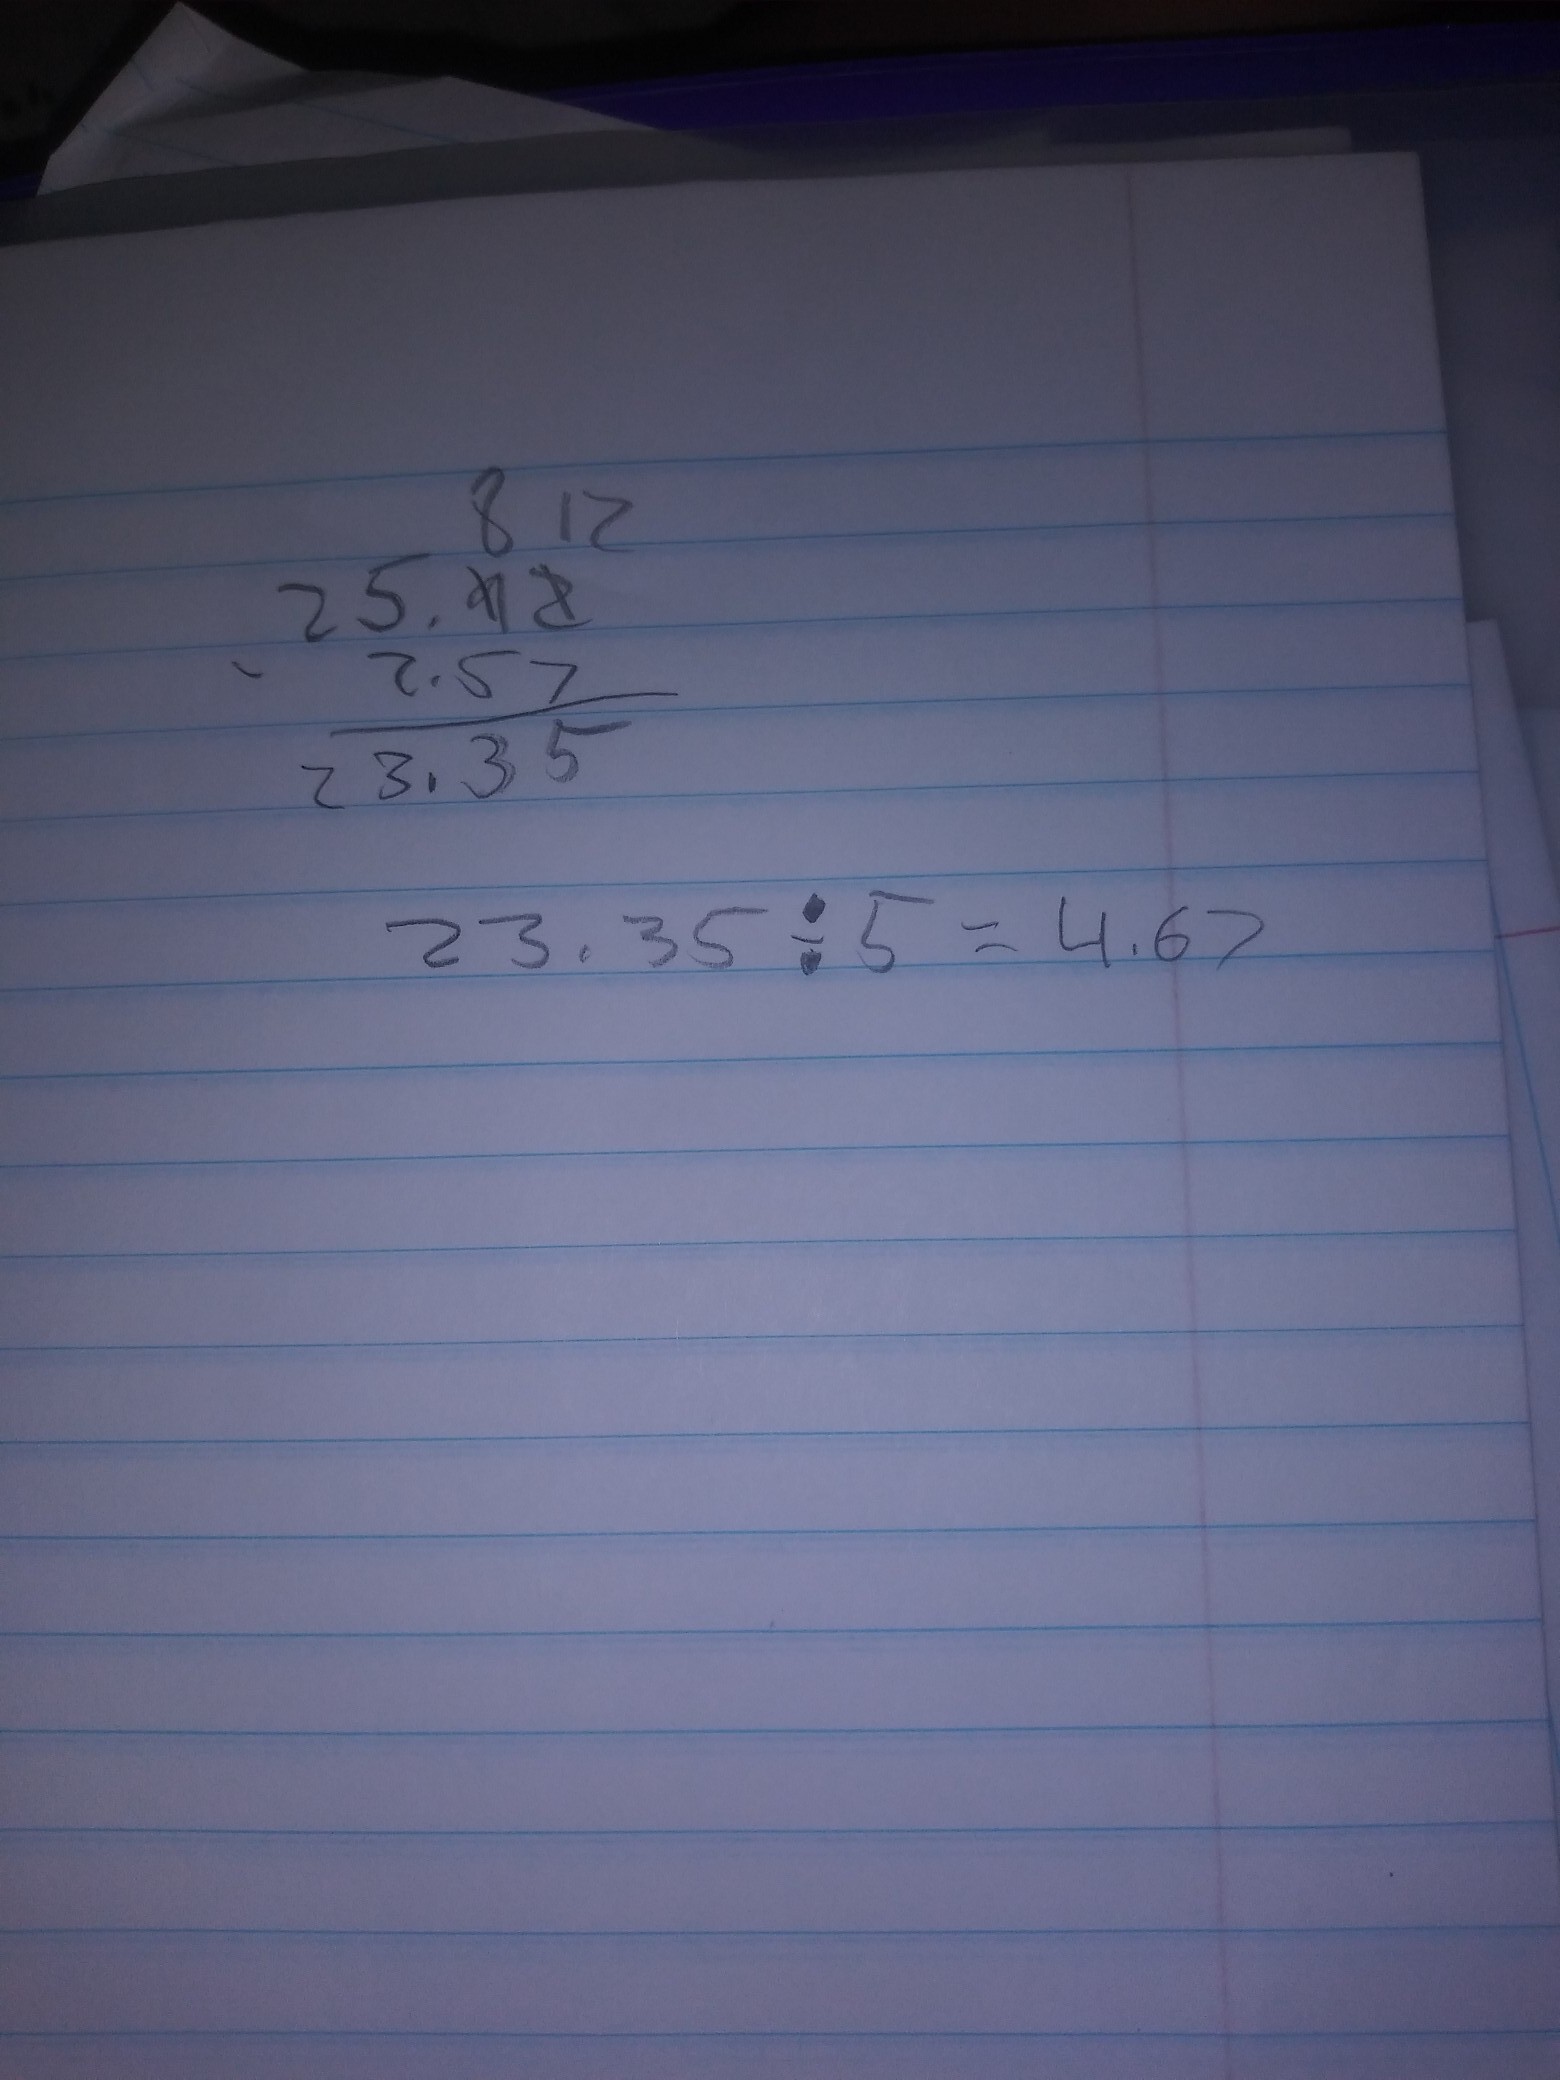 8 12
25.92
- 2.57
23.35
23.35 ÷ 5 = 4.67